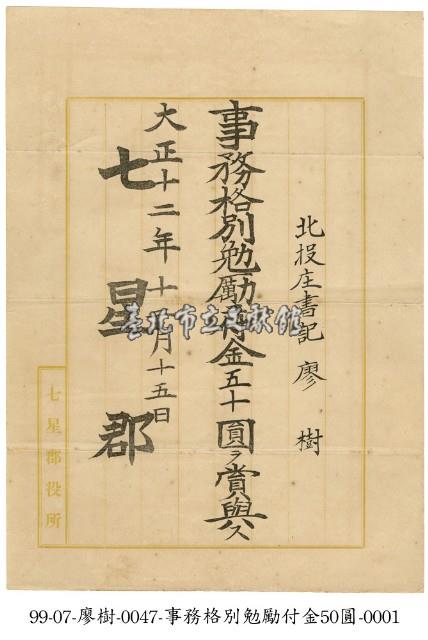 北投庄書記 廖樹
事務格別勉勵付金五十圓ヲ賞與ス
大正十二年十月十五日
七星郡
七星郡役所
臺北市立文獻館
99-07-廖樹-0047-事務格別勉勵付金50圓-0001